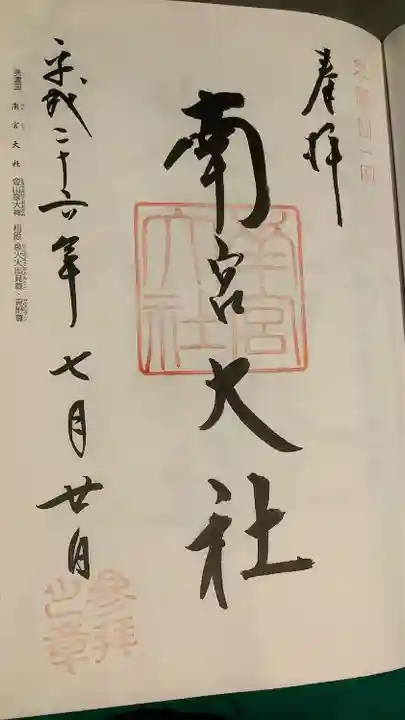 奉拝
南宮大社
南宮
大社
平成二十六年七月廿日
参拝
之章
美濃国 南宮大社